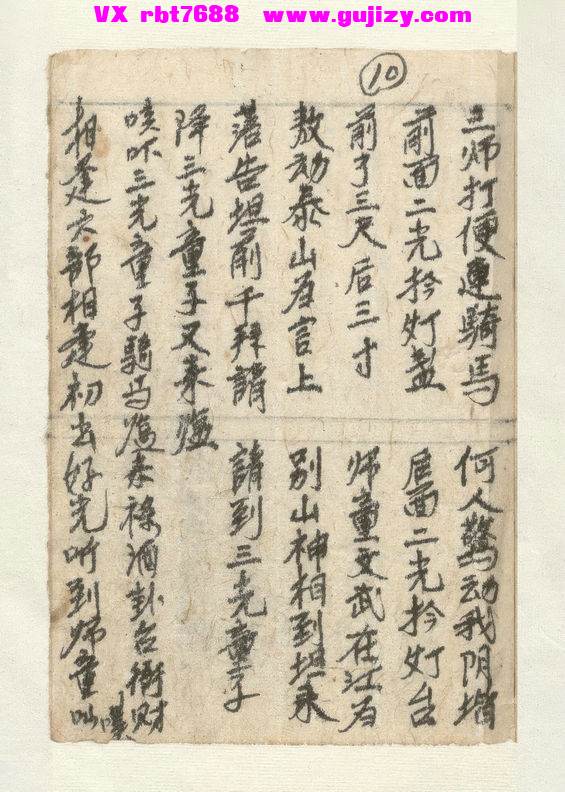 VX rbt7688 www.gujizy.com
10
三师打便連騎馬 何人驚动我阴
前面二光拎灯盏 后面二光拎灯台
前了三尺后三寸 师童文武在江
敖动泰山有言上 别山神相到坛来
落告坛前千拜請 請到三光童子
降三光童子又来
三光童子騎马 禄酒 台衙财
相逢六部相逢初去好光听到师童叫